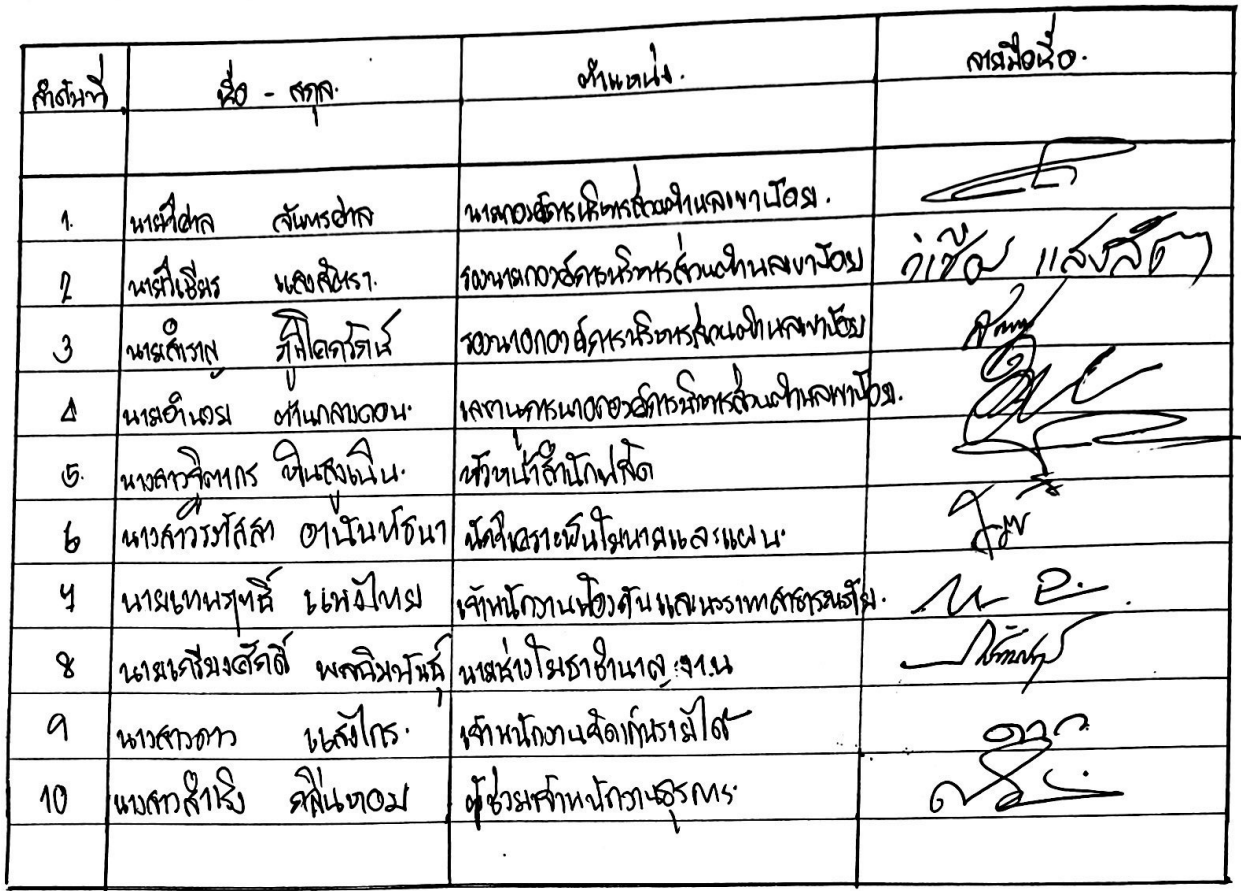 ลำดับที่ ชื่อ - สกุล. ตำแหน่ง. ลายมือชื่อ.
1. นายวิศาล จันทรศาล นายกองค์การบริหารส่วนตำบลเขาน้อย.
2 นายวิเชียร แสงสีตรา. รองนายกองค์การบริหารส่วนตำบลเขาน้อย วิเชียร
3 นายสำราญ รองนายกองค์การบริหารส่วนตำบลเขาน้อย
4 นายอำนวย ด่านกลางดอน. เลขานุการนายกองค์การบริหารส่วนตำบลเขาน้อย.
5. นางสาวจิตาภร หินสูงเนิน. หัวหน้าสำนักปลัด
6 นางสาววรรัสสา อานันท์ธนา นักวิเคราะห์นโยบายและแผน.
7 นายเทพฤทธิ์ แพงไทย เจ้าพนักงานป้องกันและบรรเทาสาธารณภัย.
8 นายเกรียงศักดิ์ พลฉิมพันธุ์ นายช่างโยธาชำนาญงาน
9 นางสาวดาว แสงไกร. เจ้าพนักงานจัดเก็บรายได้ ดาว
10 นางสาวสำเริง กลิ่นหอม ผู้ช่วยเจ้าพนักงานธุรการ.